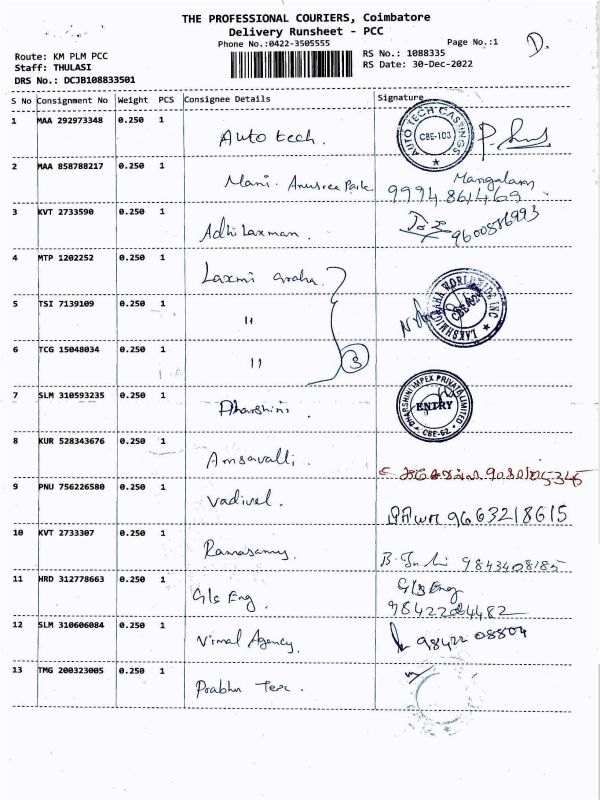 THE PROFESSIONAL COURIERS, Coimbatore
Delivery Runsheet - PCC
Phone No.:0422-3505555
Page No.:1
D.
Route: KM PLM PCC
RS No.: 1088335
Staff: THULASI
RS Date: 30-Dec-2022
DRS No.: DCJB108833501
S No Consignment No Weight PCS Consignee Details Signature
1 MAA 292973348 0.250 1 Auto tech.
AUTO TECH CASTINGS CBE-103
2 MAA 858788217 0.250 1 Mani. Anusree Park Mangalam
9994861469
3 KVT 2733590 0.250 1 Adhi Laxman. 9600586993
4 MTP 1202252 0.250 1 Laxmi graha.
5 TSI 7139109 0.250 1 11
LAKSHMIGRAHA WORLDWIDE INC
6 TCG 15048034 0.250 1 11 3
7 SLM 310593235 0.250 1 Dharshini.
DHARSHINI IMPEX PRIVATE LIMITED ENTRY CBE-62
8 KUR 528343676 0.250 1 Amsavalli.
9 PNU 756226580 0.250 1 Vadivel. 9663218615
10 KVT 2733307 0.250 1 Ramasamy. 9843408185
11 HRD 312778663 0.250 1 Gls Eng. Gls Eng
12 SLM 310606084 0.250 1 Vimal Agency. 98422 08804
13 TMG 200323005 0.250 1 Prabhu Tex.